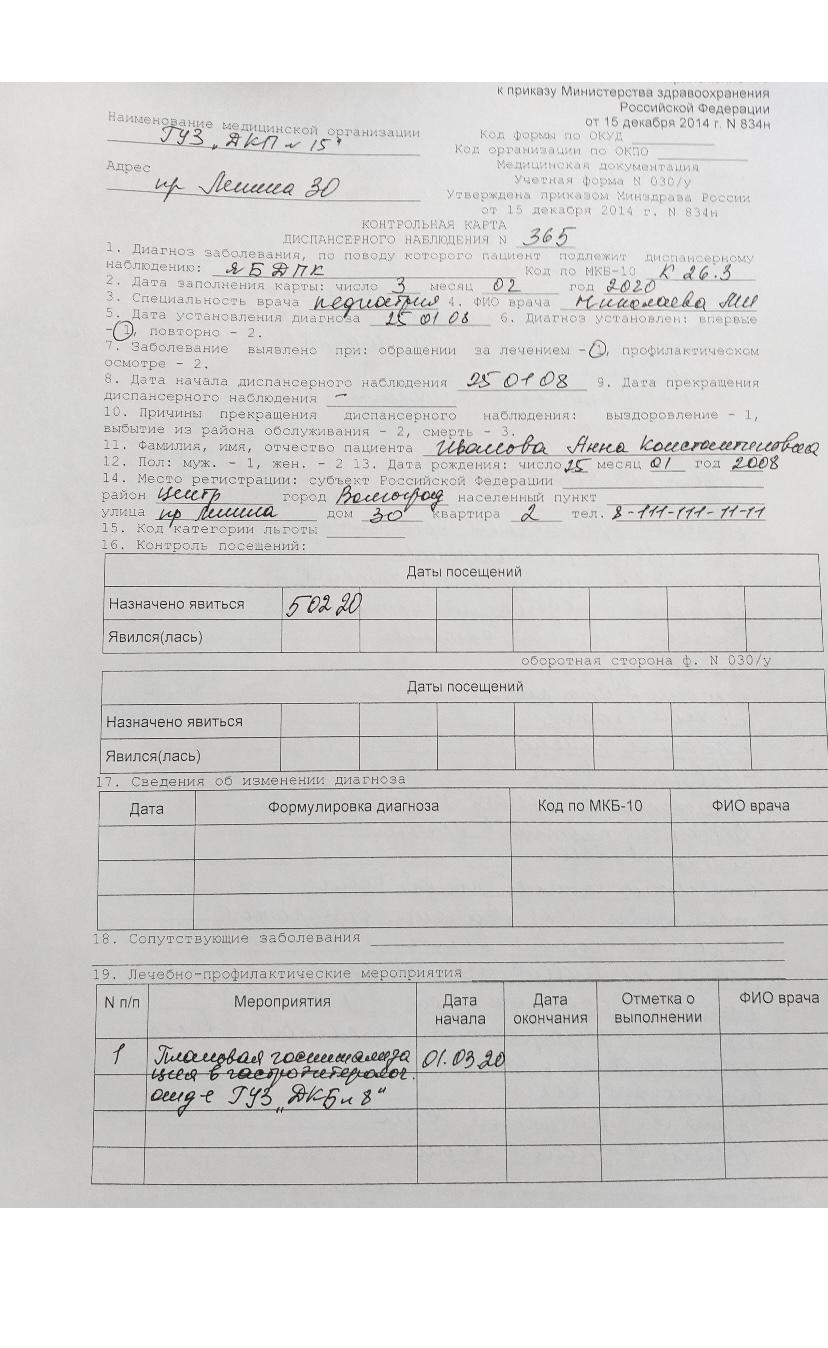 к приказу Министерства здравоохранения
Российской Федерации
от 15 декабря 2014 г. N 834н
Наименование медицинской организации
ГУЗ "ДКП №15"
Код формы по ОКУД
Код организации по ОКПО
Адрес
Медицинская документация
пр Ленина 30
Учетная форма N 030/у
Утверждена приказом Минздрава России
от 15 декабря 2014 г. N 834н
КОНТРОЛЬНАЯ КАРТА
ДИСПАНСЕРНОГО НАБЛЮДЕНИЯ N 365
1. Диагноз заболевания, по поводу которого пациент подлежит диспансерному
наблюдению: ЯБДПК Код по МКБ-10 К 26.3
2. Дата заполнения карты: число 3 месяц 02 год 2020
3. Специальность врача педиатрия 4. ФИО врача Николаева МИ
5. Дата установления диагноза 25 01 08 6. Диагноз установлен: впервые
- 1, повторно - 2.
7. Заболевание выявлено при: обращении за лечением - 1, профилактическом
осмотре - 2.
8. Дата начала диспансерного наблюдения 25 01 08 9. Дата прекращения
диспансерного наблюдения –
10. Причины прекращения диспансерного наблюдения: выздоровление - 1,
выбытие из района обслуживания - 2, смерть - 3.
11. Фамилия, имя, отчество пациента Иванова Анна Константиновна
12. Пол: муж. - 1, жен. - 2 13. Дата рождения: число 25 месяц 01 год 2008
14. Место регистрации: субъект Российской Федерации
район Центр город Волгоград населенный пункт
улица пр Ленина дом 30 квартира 2 тел. 8-111-111-11-11
15. Код категории льготы
16. Контроль посещений:
Даты посещений
Назначено явиться 5 02 20
Явился(лась)
оборотная сторона ф. N 030/у
Даты посещений
Назначено явиться
Явился(лась)
17. Сведения об изменении диагноза
Дата Формулировка диагноза Код по МКБ-10 ФИО врача
18. Сопутствующие заболевания
19. Лечебно-профилактические мероприятия
N п/п Мероприятия Дата начала Дата окончания Отметка о выполнении ФИО врача
1 Плановая госпитализа 01.03.20
ция в гастроэнтеролог.
отд-е ГУЗ "ДКБ №8"